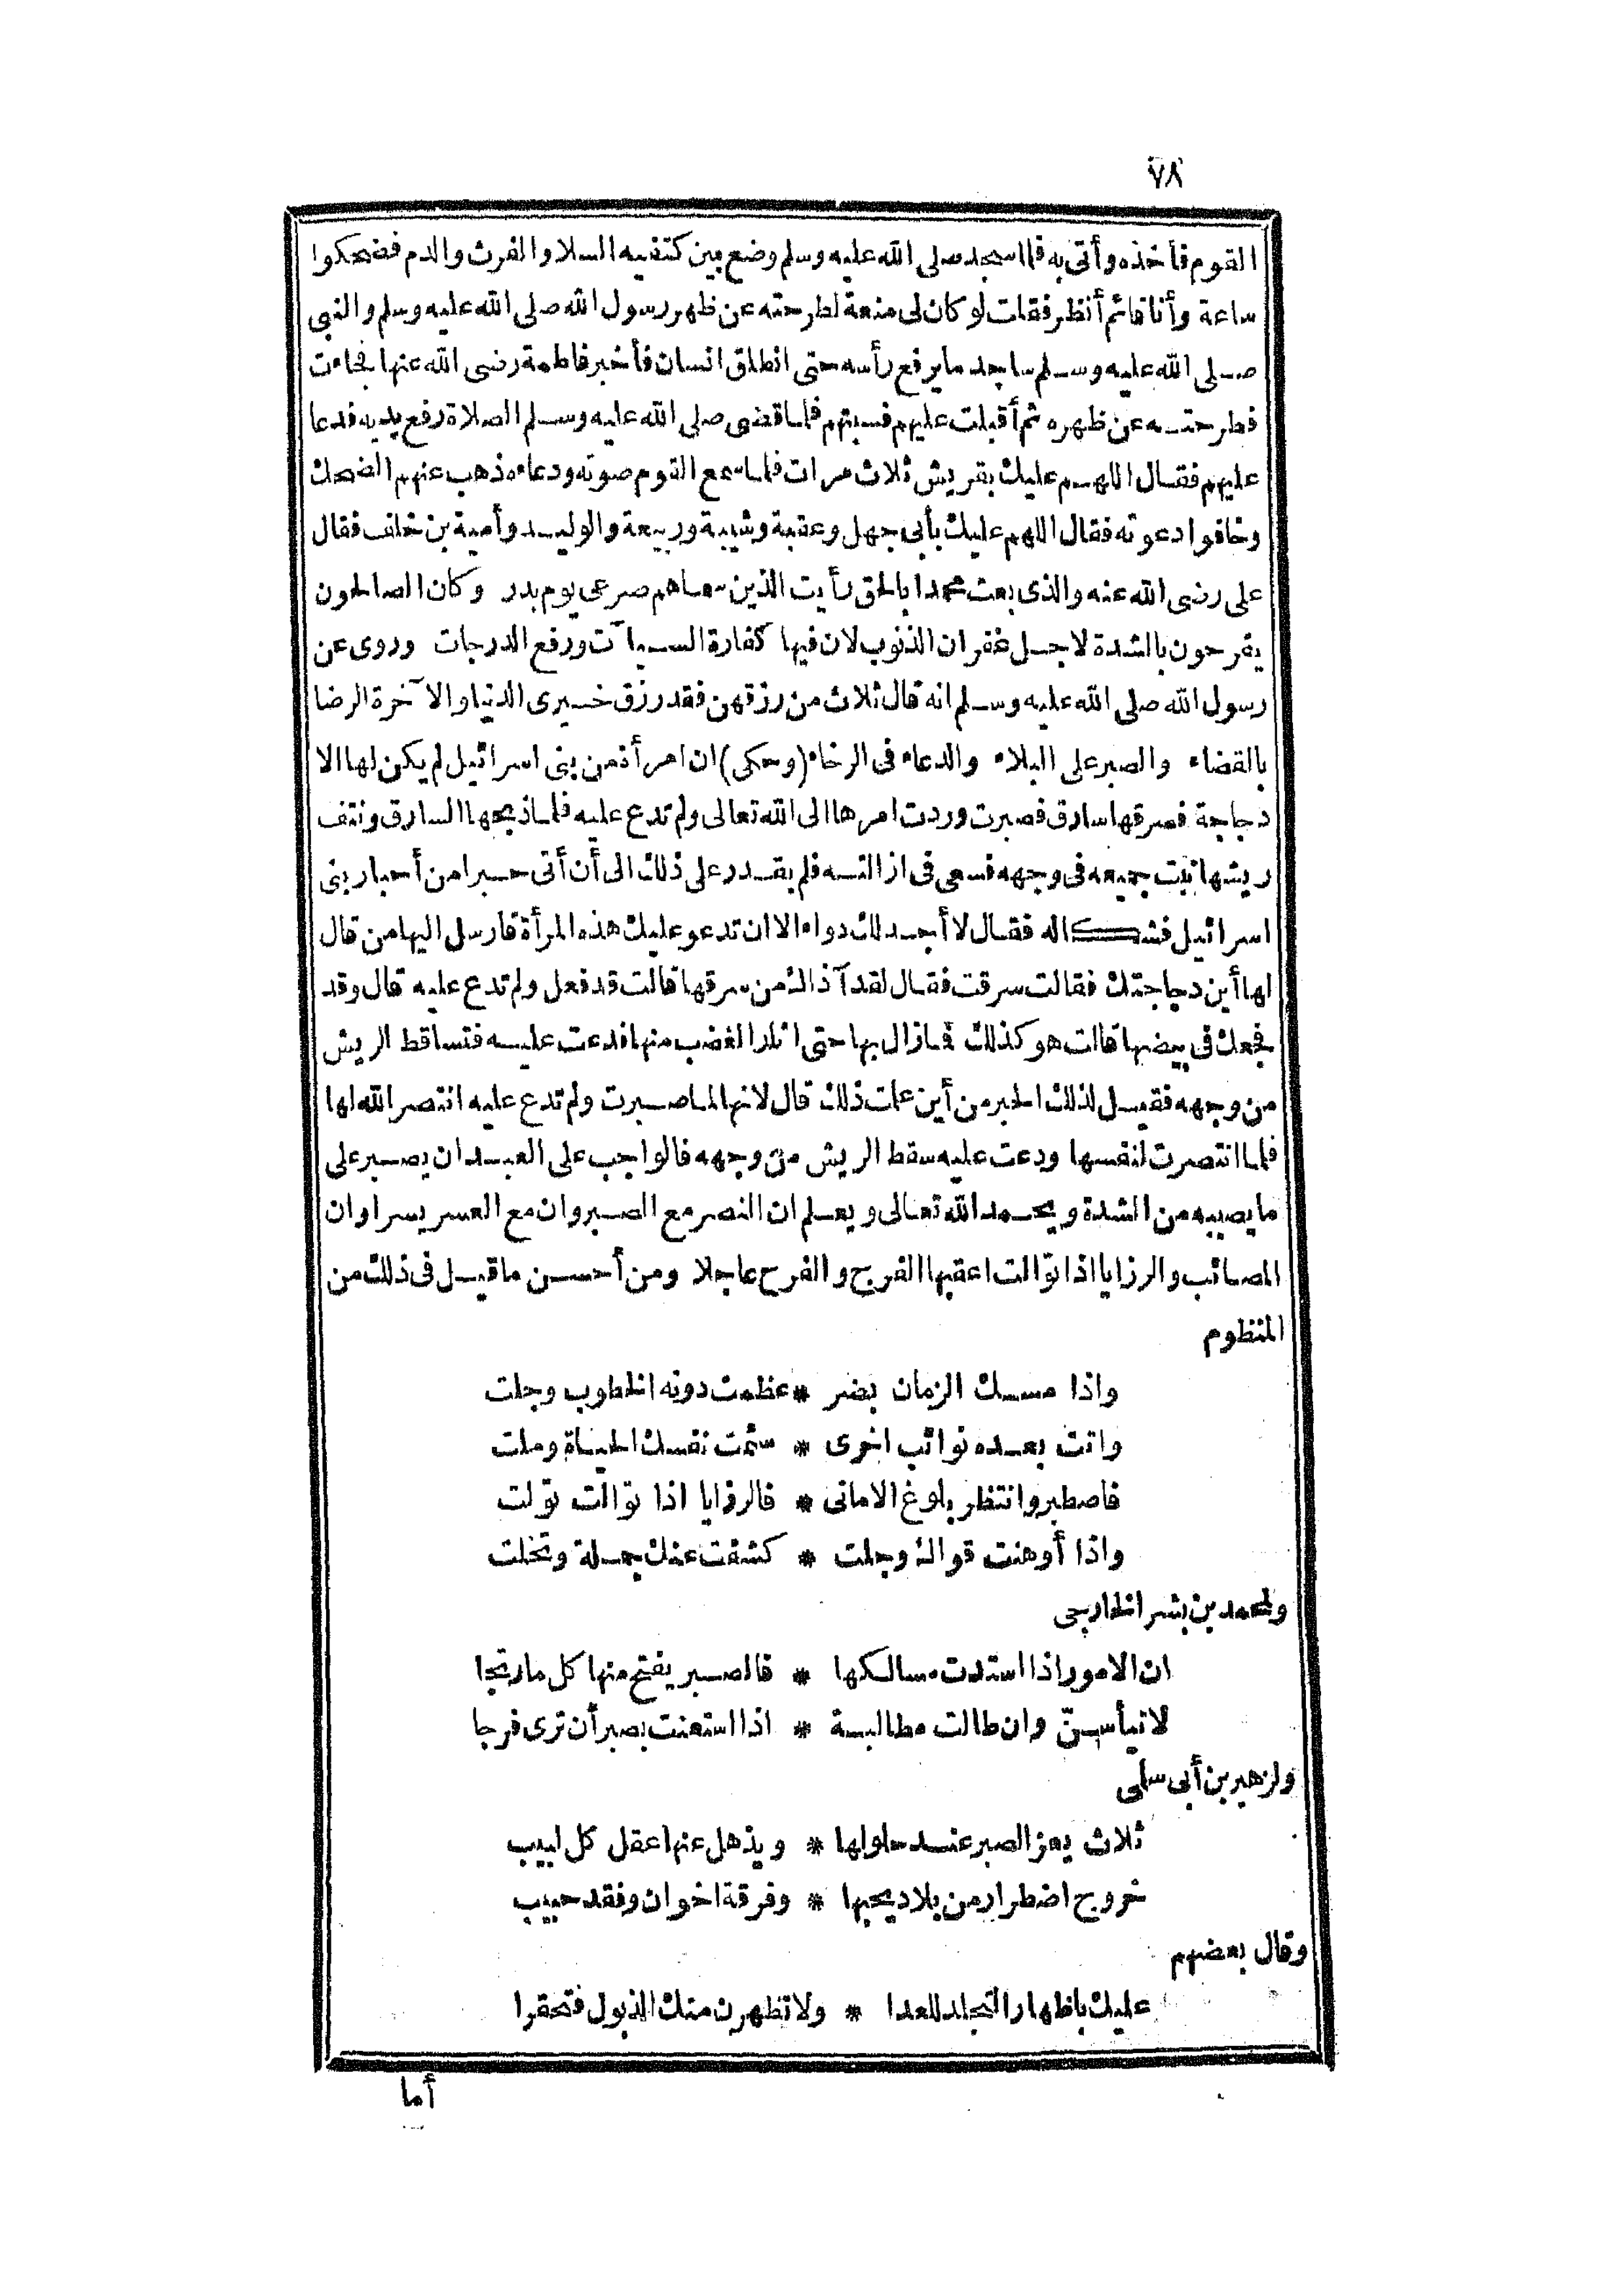 ٧٨
القوم فأخذه وأتى به فلما سجد صلى الله عليه وسلم وضع بين كتفيه السلا والفرث والدم فضحكوا
ساعة وأنا قائم أنظر فقلت لو كان لى منعة لطرحته عن ظهر رسول الله صلى الله عليه وسلم والنبى
صلى الله عليه وسلم ساجد ما يرفع رأسه حتى انطلق انسان فأخبر فاطمة رضى الله عنها فجاءت
فطرحته عن ظهره ثم أقبلت عليهم فسبتهم فلما قضى صلى الله عليه وسلم الصلاة رفع يديه فدعا
عليهم فقال اللهم عليك بقريش ثلاث مرات فلما سمع القوم صوته ودعاءه ذهب عنهم الضحك
وخافوا دعوته فقال اللهم عليك بأبى جهل وعقبة وشيبة وربيعة والوليد وأمية بن خلف فقال
على رضى الله عنه والذى بعث محمدا بالحق رأيت الذين سماهم صرعى يوم بدر وكان الصالحون
يفرحون بالشدة لاجل غفران الذنوب لان فيها كفارة السيئات ورفع الدرجات وروى عن
رسول الله صلى الله عليه وسلم انه قال ثلاث من رزقهن فقد رزق خيرى الدنيا والآخرة الرضا
بالقضاء والصبر على البلاء والدعاء فى الرخاء (وحكى) ان امرأة من بنى اسرائيل لم يكن لها الا
دجاجة فسرقها سارق فصبرت وردت امرها الى الله تعالى ولم تدع عليه فلما ذبحها السارق ونتف
ريشها نبت جميعه فى وجهه فسعى فى ازالته فلم يقدر على ذلك الى أن أتى حبرا من أحبار بنى
اسرائيل فشكا له فقال لا أجد لك دواء الا ان تدعو عليك هذه المرأة فارسل اليها من قال
لها أين دجاجتك فقالت سرقت فقال لقد آذاك من سرقها قالت قد فعل ولم تدع عليه قال وقد
فجعك فى بيضها قالت هو كذلك فما زال بها حتى اثار الغضب منها فدعت عليه فتساقط الريش
من وجهه فقيل لذلك الحبر من أين علمت ذلك قال لانها لما صبرت ولم تدع عليه انتصر الله لها
فلما انتصرت لنفسها ودعت عليه سقط الريش من وجهه فالواجب على العبد ان يصبر على
ما يصيبه من الشدة ويحمد الله تعالى ويعلم ان النصر مع الصبر وان مع العسر يسرا وان
المصائب والرزايا اذا توالت اعقبها الفرج والفرح عاجلا ومن أحسن ما قيل فى ذلك من
المنظوم
واذا مسك الزمان بضر * عظمت دونه الخطوب وجلت
واتت بعده نوائب اخرى * سئمت نفسك الحياة وملت
فاصطبر وانتظر بلوغ الامانى * فالرزايا اذا توالت تولت
واذا أوهنت قواك وجلت * كشفت عنك جملة وتخلت
ولمحمد بن بشر الخارجى
ان الامور اذا استدت مسالكها * فالصبر يفتح منها كل ما ارتجا
لا تيأسنّ وان طالت مطالبة * اذا استعنت بصبر أن ترى فرجا
ولزهير بن أبى سلمى
ثلاث يعز الصبر عند حلولها * ويذهل عنها عقل كل لبيب
خروج اضطرار من بلاد يحبها * وفرقة اخوان وفقد حبيب
وقال بعضهم
عليك باظهار التجلد للعدا * ولا تظهرن منك الذبول فتحقرا
أما